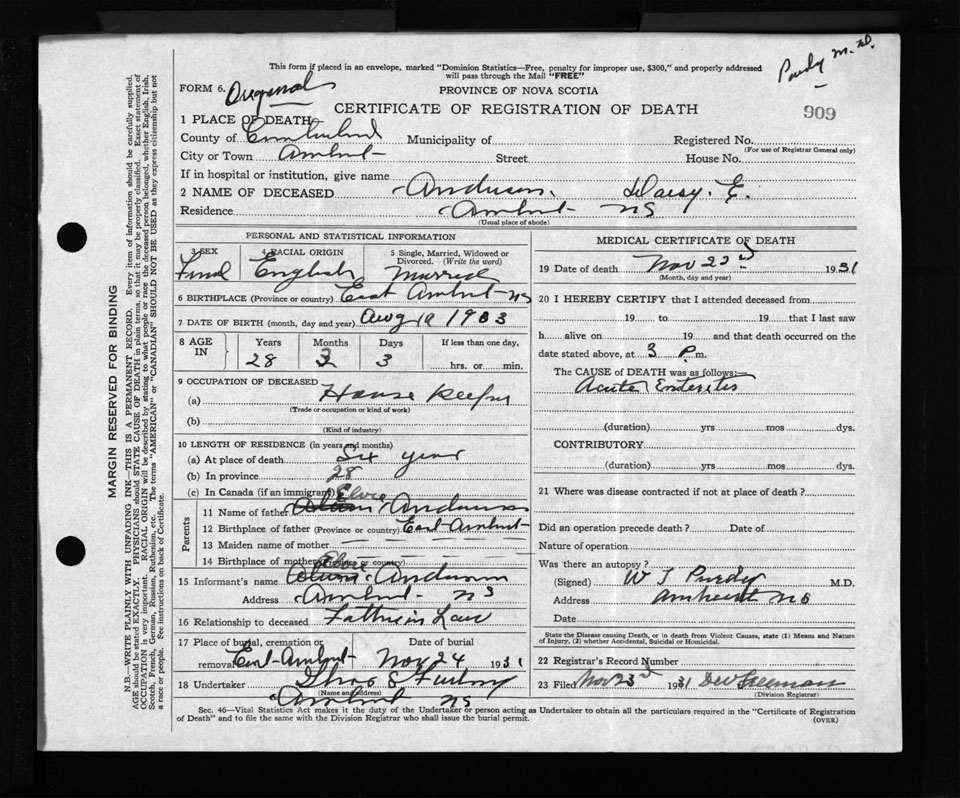 Purdy M.D.
This form if placed in an envelope, marked "Dominion Statistics—Free, penalty for improper use, $300," and properly addressed
will pass through the Mail "FREE"
FORM 6. Original
PROVINCE OF NOVA SCOTIA
CERTIFICATE OF REGISTRATION OF DEATH
909
1 PLACE OF DEATH
County of Cumberland Municipality of Registered No.
(For use of Registrar General only)
City or Town Amherst Street House No.
If in hospital or institution, give name
2 NAME OF DECEASED Anderson. Daisy. E.
Residence Amherst NS
(Usual place of abode)
PERSONAL AND STATISTICAL INFORMATION
3 SEX 4 RACIAL ORIGIN 5 Single, Married, Widowed or
Divorced. (Write the word)
Femal English Married
6 BIRTHPLACE (Province or country) East Amherst NS
7 DATE OF BIRTH (month, day and year) Aug 19 1903
8 AGE IN Years Months Days If less than one day,
28 3 3 hrs. or min.
9 OCCUPATION OF DECEASED
(a) House Keeper
(Trade or occupation or kind of work)
(b)
(Kind of industry)
10 LENGTH OF RESIDENCE (in years and months)
(a) At place of death Six year
(b) In province 28
(c) In Canada (if an immigrant)
Parents
11 Name of father Elvie Anderson
12 Birthplace of father (Province or country) East Amherst
13 Maiden name of mother — — — —
14 Birthplace of mother (Province or country)
15 Informant's name Elvie Anderson
Address Amherst NS
16 Relationship to deceased Father in Law
17 Place of burial, cremation or Date of burial
removal East Amherst Nov 24 1931
18 Undertaker Thos S
(Name and address)
Amherst NS
MEDICAL CERTIFICATE OF DEATH
19 Date of death Nov 22nd 1931
(Month, day and year)
20 I HEREBY CERTIFY that I attended deceased from
19 to 19 that I last saw
h alive on 19 and that death occurred on the
date stated above, at 3 P. m.
The CAUSE of DEATH was as follows:—
Acute Enteritis
(duration) yrs mos dys.
CONTRIBUTORY
(duration) yrs mos dys.
21 Where was disease contracted if not at place of death?
Did an operation precede death? Date of
Nature of operation
Was there an autopsy?
(Signed) W T Purdy M.D.
Address Amherst NS
Date
State the Disease causing Death, or in death from Violent Causes, state (1) Means and Nature
of Injury, (2) whether Accidental, Suicidal or Homicidal.
22 Registrar's Record Number
23 Filed Nov 23rd 1931 Freeman
(Division Registrar)
Sec. 46—Vital Statistics Act makes it the duty of the Undertaker or person acting as Undertaker to obtain all the particulars required in the "Certificate of Registration
of Death" and to file the same with the Division Registrar who shall issue the burial permit.
(OVER)
MARGIN RESERVED FOR BINDING
N.B.—WRITE PLAINLY WITH UNFADING INK—THIS IS A PERMANENT RECORD. Every item of information should be carefully supplied.
AGE should be stated EXACTLY. PHYSICIANS should STATE CAUSE OF DEATH in plain terms, so that it may be properly classified. Exact statement of
OCCUPATION is very important. RACIAL ORIGIN will be described by stating to what people or race the deceased person belonged, whether English, Irish,
Scotch, French, German, Russian, Ruthenian, etc. The terms "AMERICAN" or "CANADIAN" SHOULD NOT BE USED as they express citizenship but not
a race or people. See instructions on back of Certificate.